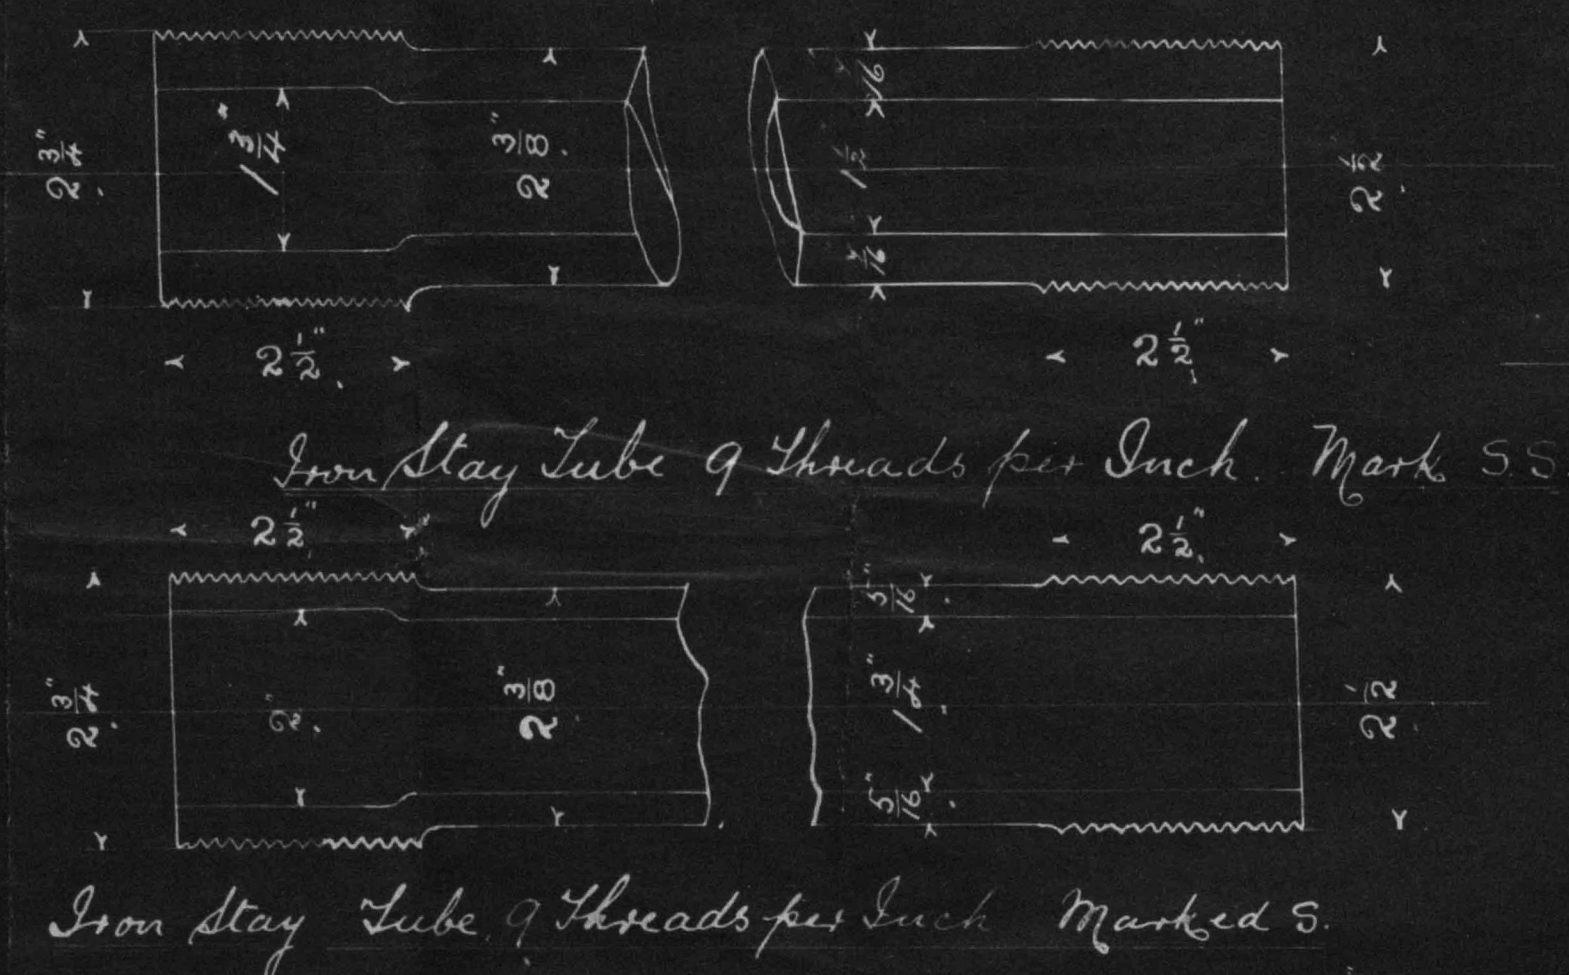 2 3/4"
1 3/4"
2 3/8"
7/16
1 1/2
7/16
2 1/2"
2 1/2"
2 1/2"
Iron Stay Tube 9 Threads per Inch. Mark S.S
2 1/2"
2 1/2"
2 3/4"
2"
2 3/8"
5/16"
1 3/4"
5/16"
2 1/2"
Iron Stay Tube 9 Threads per Inch Marked S.